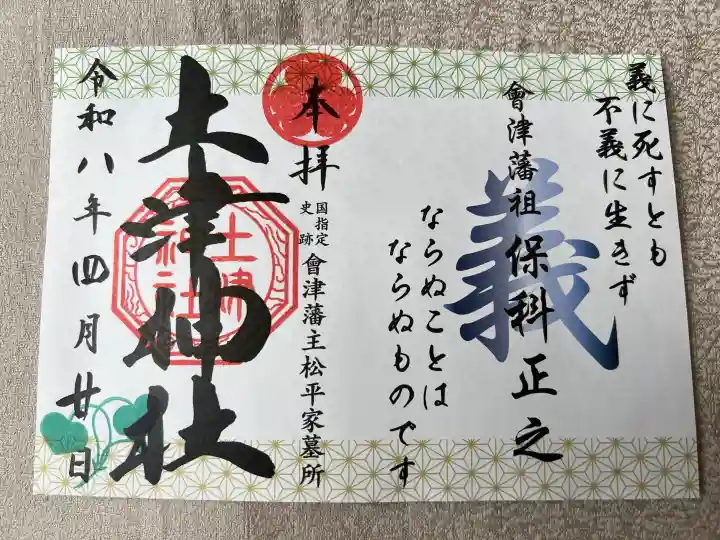 義に死すとも
不義に生きず
義
會津藩祖保科正之
ならぬことは
ならぬものです
奉拝
国指定
史跡
會津藩主松平家墓所
土津神社
土津
神社
令和八年四月廿日